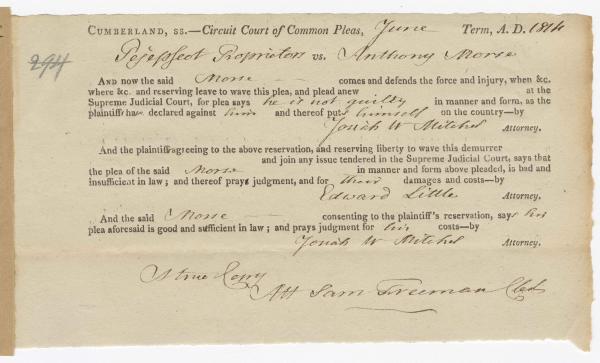 CUMBERLAND, SS.—Circuit Court of Common Pleas, June Term, A. D. 1814
294
Pejepscot Proprietors vs. Anthony Morse
AND now the said Morse comes and defends the force and injury, when &c.
where &c. and reserving leave to wave this plea, and plead anew at the
Supreme Judicial Court, for plea says he is not guilty in manner and form, as the
plaintiffs have declared against him and thereof puts himself on the country—by
Josiah W Mitchel Attorney.
And the plaintiff agreeing to the above reservation, and reserving liberty to wave this demurrer
and join any issue tendered in the Supreme Judicial Court, says that
the plea of the said Morse in manner and form above pleaded, is bad and
insufficient in law; and thereof prays judgment, and for their damages and costs—by
Edward Little Attorney.
And the said Morse consenting to the plaintiff's reservation, says his
plea aforesaid is good and sufficient in law; and prays judgment for his costs—by
Josiah W Mitchel Attorney.
A true Copy
Att Sam Freeman Clerk